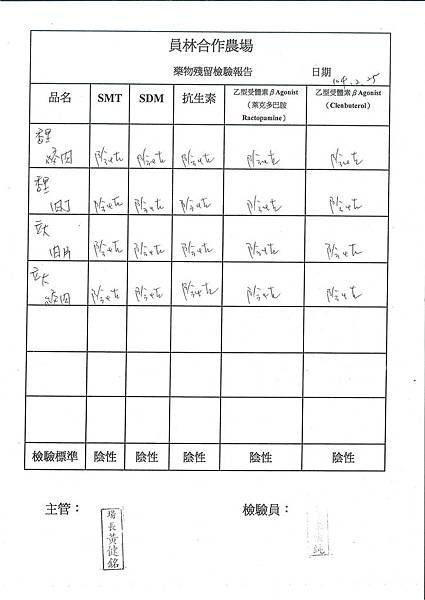 員林合作農場
藥物殘留檢驗報告 日期 104.2.25
品名 SMT SDM 抗生素 乙型受體素βAgonist（萊克多巴胺Ractopamine） 乙型受體素βAgonist（Clenbuterol）
陰性 陰性 陰性 陰性 陰性
陰性 陰性 陰性 陰性 陰性
立大
肉片 陰性 陰性 陰性 陰性 陰性
立大
絞肉 陰性 陰性 陰性 陰性 陰性
檢驗標準 陰性 陰性 陰性 陰性 陰性
主管： 場長黃健銘 檢驗員：